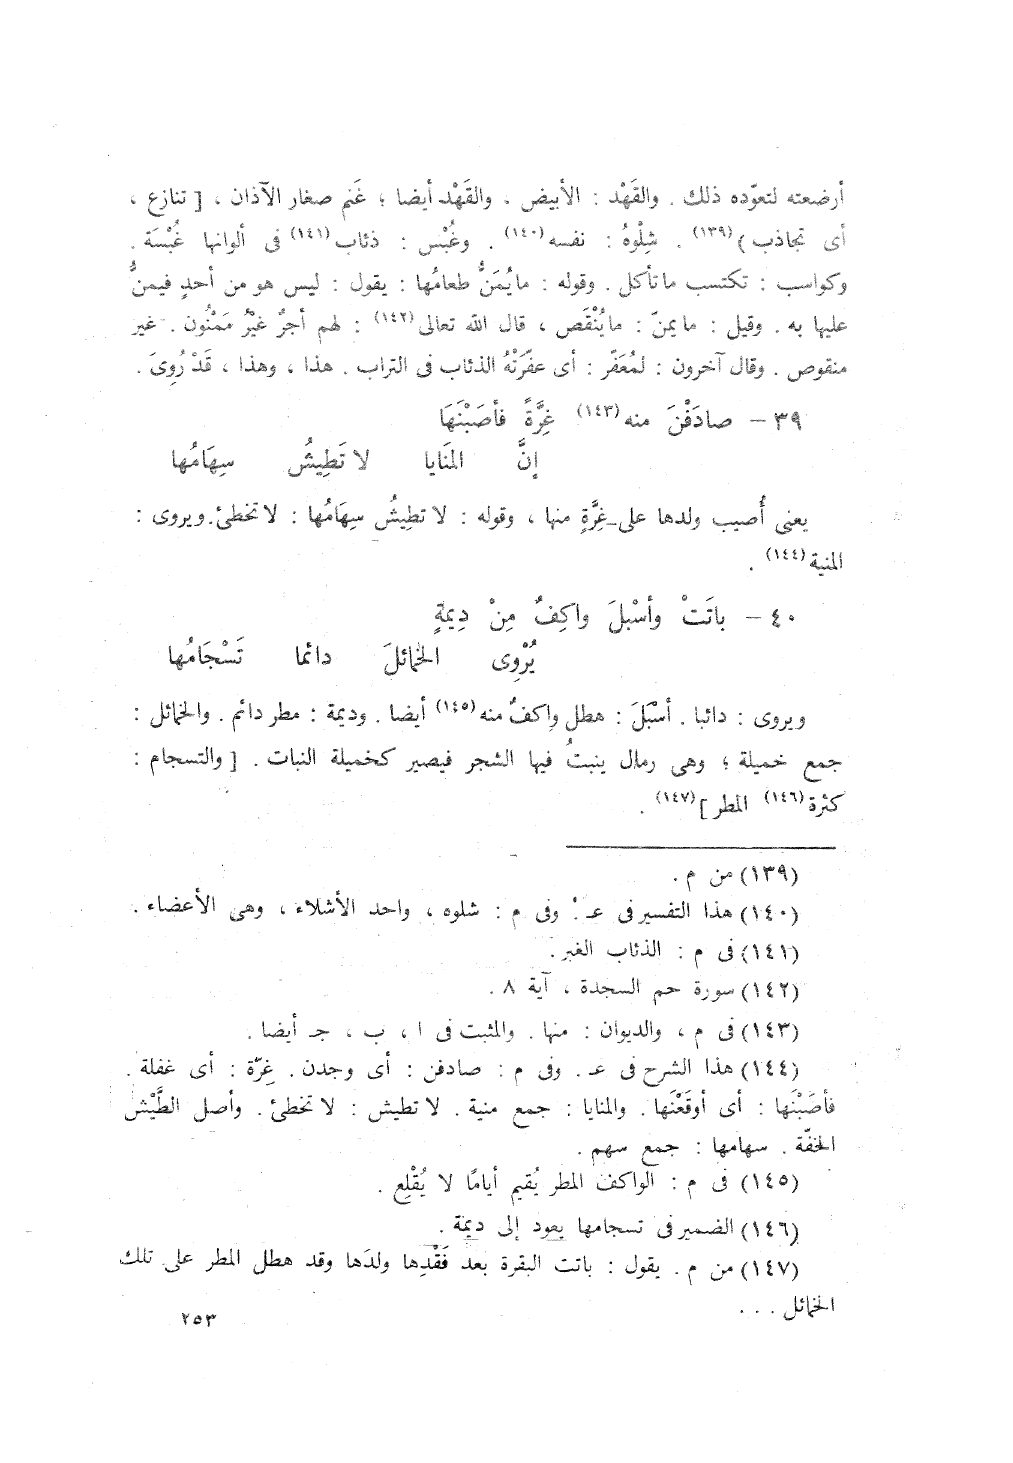 أرضعته لتعوّده ذلك . والقَهْد : الأبيض ، والقَهْد أيضا ؛ غَنم صغار الآذان ، [ تنازع ،
أى تجاذب ) (١٣٩) . شِلْوهُ : نفسه (١٤٠) . وغُبْس : ذئاب (١٤١) فى ألوانها غُبْسَة .
وكواسب : تكتسب ماتأكل . وقوله : مايُمَنُّ طعامُها : يقول : ليس هو من أحدٍ فيمنُّ
عليها به . وقيل : مايمنّ : مايُنْقَص ، قال الله تعالى (١٤٢) : لهم أجرٌ غيْرُ مَمْنُون . غير
منقوص . وقال آخرون : لمُعَفّر : أى عفّرَتْهُ الذئاب فى التراب . هذا ، وهذا ، قَدْ رُوِىَ .
٣٩ – صادَفْنَ منه (١٤٣) غِرَّةً فأصَبْنَهَا
إنَّ المَنَايا لا تَطِيشُ سِهَامُها
يعنى أُصيب ولدها على غِرَّةٍ منها ، وقوله : لا تطِيشُ سِهَامُها : لا تخطئ . ويروى :
المنية (١٤٤) .
٤٠ – باتَتْ وأسْبلَ واكِفٌ مِنْ دِيمةٍ
يُرْوِى الخمائلَ دائما تَسْجَامُها
ويروى : دائبا . أسْبَلَ : هطل واكفٌ منه (١٤٥) أيضا . وديمة : مطر دائم . والخمائل :
جمع خميلة ؛ وهى رمال ينبتُ فيها الشجر فيصير كخميلة النبات . [ والتسجام :
كثرة (١٤٦) المطر ] (١٤٧) .
(١٣٩) من م .
(١٤٠) هذا التفسير فى عـ . وفى م : شلوه ، واحد الأشلاء ، وهى الأعضاء .
(١٤١) فى م : الذئاب الغبر .
(١٤٢) سورة حم السجدة ، آية ٨ .
(١٤٣) فى م ، والديوان : منها . والمثبت فى ا ، ب ، جـ أيضا .
(١٤٤) هذا الشرح فى عـ . وفى م : صادفن : أى وجدن . غِرّة : أى غفلة .
فأصَبْنَها : أى أوقَعْنَها . والمنايا : جمع منية . لا تطيش : لا تخطئ . وأصل الطَّيْش
الخفّة . سهامها : جمع سهم .
(١٤٥) فى م : الواكف المطر يُقيم أيامًا لا يُقْلِع .
(١٤٦) الضمير فى تسجامها يعود إلى ديمة .
(١٤٧) من م . يقول : باتت البقرة بعد فَقْدِها ولدَها وقد هطل المطر على تلك
الخمائل . . .
٢٥٣